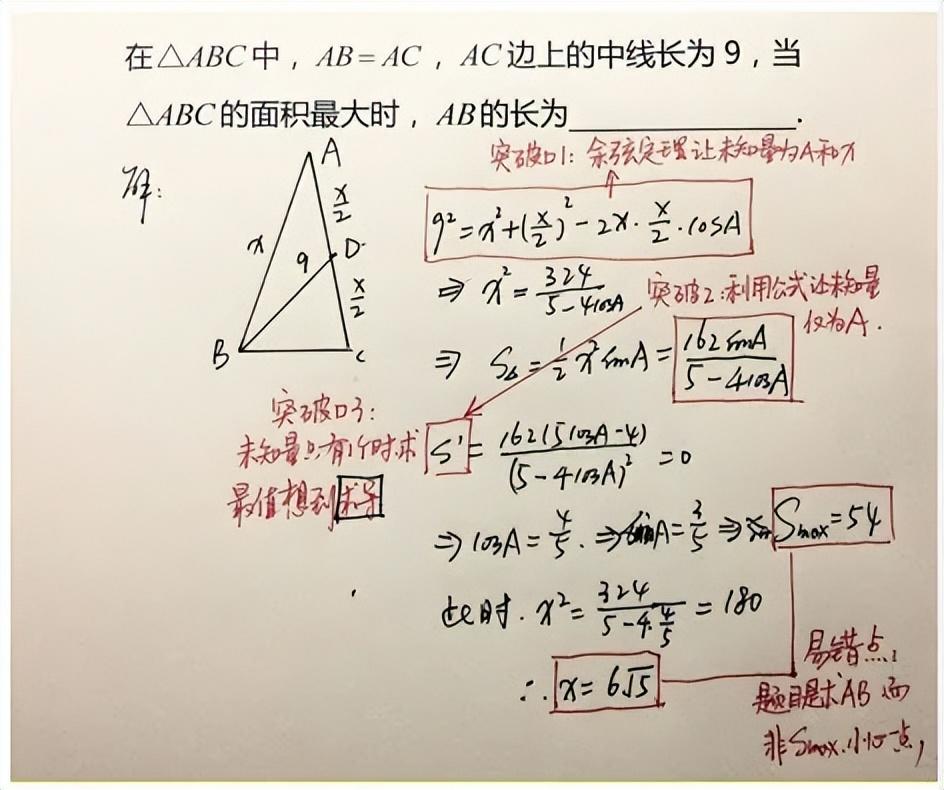 在△ABC中，AB=AC，AC边上的中线长为9，当
△ABC的面积最大时，AB的长为____________.
解：
A
x/2
x
9
D
x/2
B
C
突破口1：余弦定理让未知量为A和x
9²=x²+(x/2)²-2x·x/2·cosA
⇒ x²=324/(5-4cosA)
突破2：利用公式让未知量
仅为A.
⇒ S△=1/2x²sinA=162sinA/(5-4cosA)
突破口3：
未知量只有1个时求
最值想到求导
S'=162(5cosA-4)/(5-4cosA)²=0
⇒cosA=4/5.⇒sinA=3/5⇒Smax=54
此时.x²=324/(5-4·4/5)=180
∴x=6√5
易错点：
题目是求AB而
非Smax.小心一点，